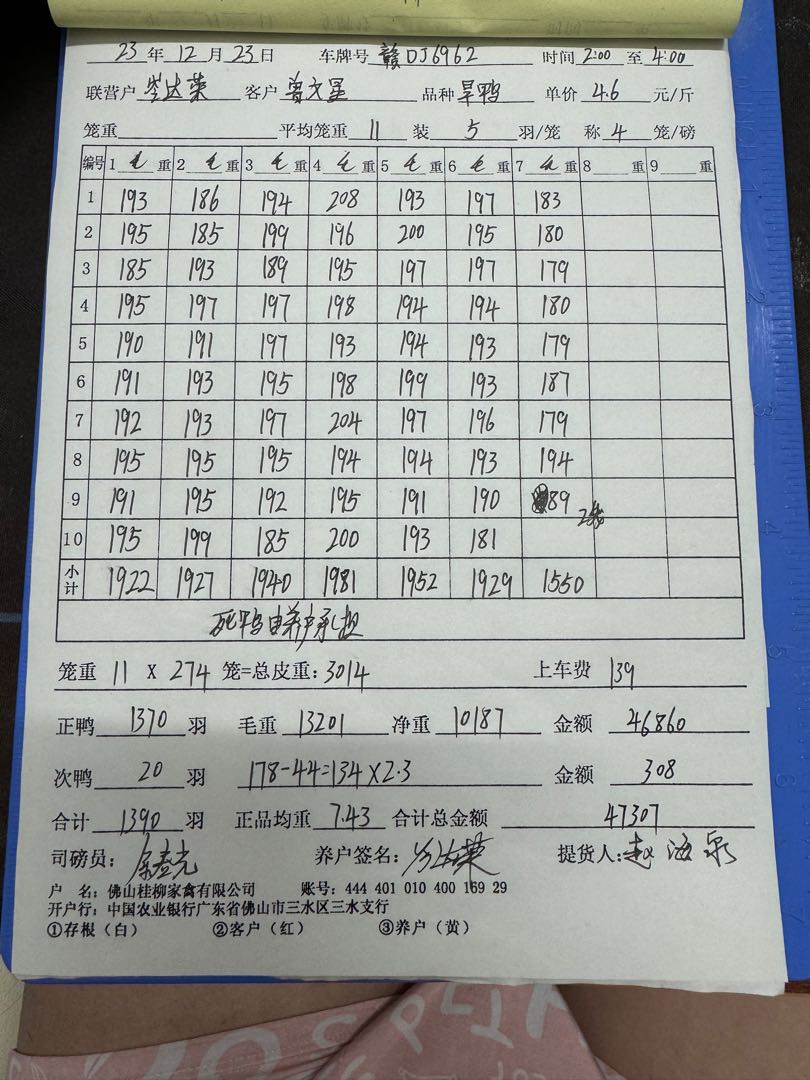 23 年 12 月 23 日 车牌号 赣DJ6962 时间 2:00 至 4:00
联营户 岑达荣 客户 曾文星 品种 旱鸭 单价 4.6 元/斤
笼重 平均笼重 11 装 5 羽/笼 称 4 笼/磅
编号 1 毛 重 2 毛 重 3 毛 重 4 毛 重 5 毛 重 6 毛 重 7 毛 重 8 重 9 重
1 193 186 194 208 193 197 183
2 195 185 199 196 200 195 180
3 185 193 189 195 197 197 179
4 195 197 197 198 194 194 180
5 190 191 197 193 194 193 179
6 191 193 195 198 199 193 187
7 192 193 197 204 197 196 179
8 195 195 195 194 194 193 194
9 191 195 192 195 191 190 89 2笼
10 195 199 185 200 193 181
小计 1922 1927 1940 1981 1952 1929 1550
死鸭由养户承担
笼重 11 X 274 笼=总皮重: 3014 上车费 139
正鸭 1370 羽 毛重 13201 净重 10187 金额 46860
次鸭 20 羽 178-44=134X2.3 金额 308
合计 1390 羽 正品均重 7.43 合计总金额 47307
司磅员: 养户签名: 岑达荣 提货人: 赵海泉
户 名: 佛山桂柳家禽有限公司 账号: 444 401 010 400 169 29
开户行: 中国农业银行广东省佛山市三水区三水支行
①存根（白） ②客户（红） ③养户（黄）